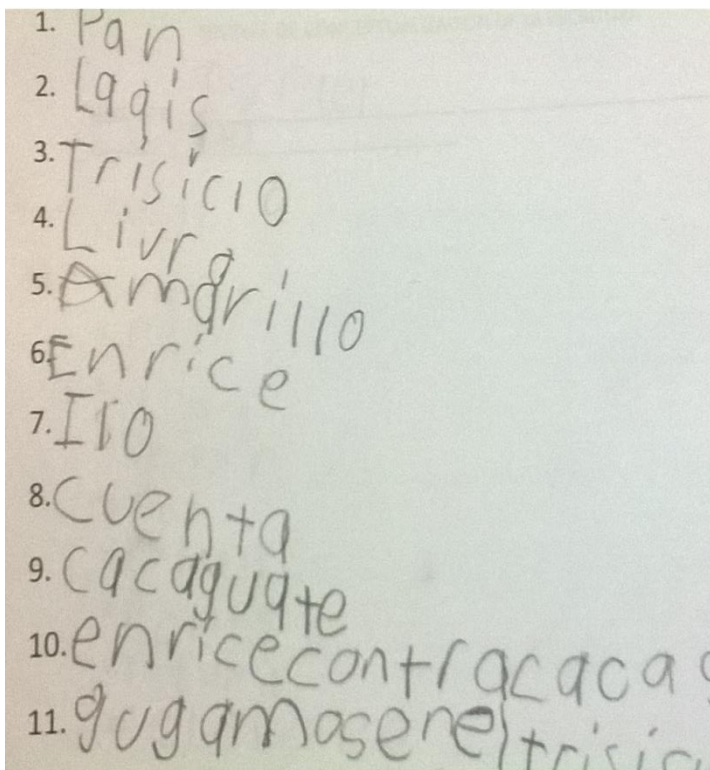 1. Pan
2. Lagis
3. Trisicio
4. Livra
5. Amarillo
6. Enrice
7. Iro
8. cuenta
9. cacaguate
10. enricecontracaca
11. gugamoseneltrisic